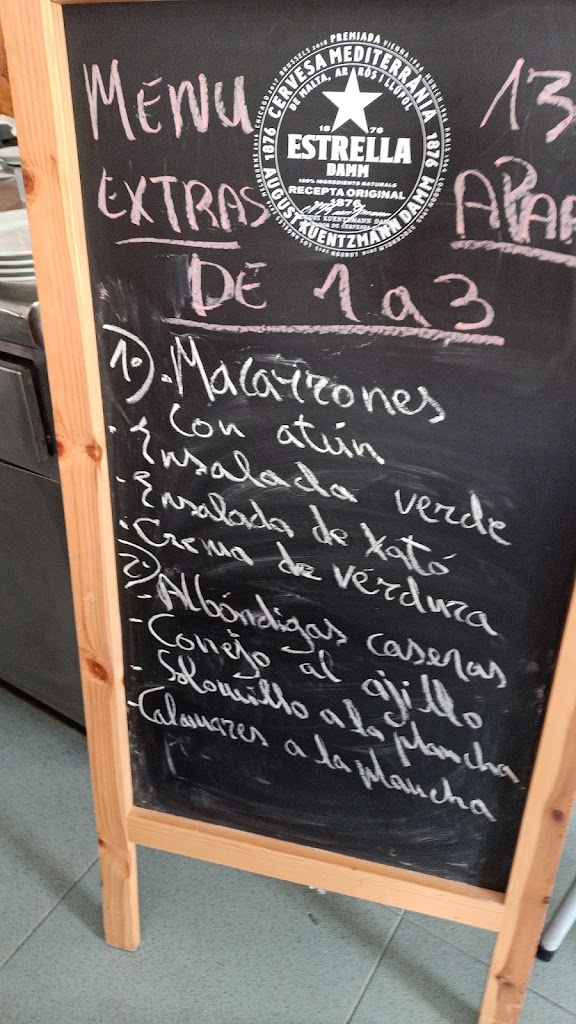 MENU 13
EXTRAS APAR
DE 1 a 3
PREMIADA
CERVESA MEDITERRÀNIA
DE MALTA, ARRÒS I LLÚPOL
1876
1876
1876
ESTRELLA
DAMM
100% INGREDIENTS NATURALS
RECEPTA ORIGINAL
1876
AUGUST KUENTZMANN DAMM
1º). Macarrones
con atún
. Ensalada verde
. Ensalada de xató
. Crema de verdura
2º)
- Albóndigas caseras
- Conejo al ajillo
- Solomillo a la plancha
- Calamares a la plancha